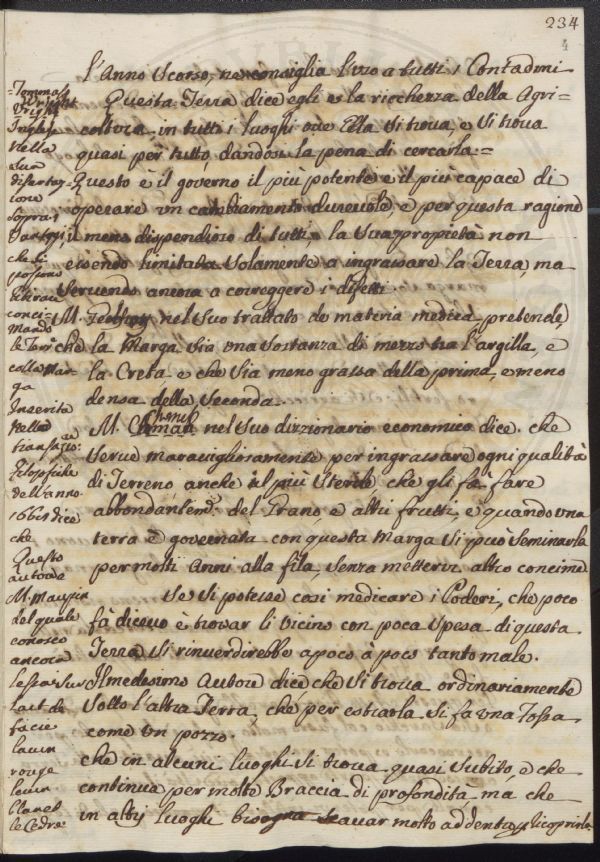 234
4
l'Anno Scorso, ne consiglia l'uso a tutti i Contadini
Questa Terra dice egli è la ricchezza della Agri=
coltura in tutti i luoghi ove Ella si trova, e si trova
quasi per tutto, dandosi la pena di cercarla.=
Questo è il governo il più potente e il più capace di
operare un cambiamento durevole e per questa ragione
il meno dispendioso di tutti. la Sua proprietà non
essendo limitata solamente a ingrassare la Terra, ma
servendo ancora a correggere i difetti
M. Geofroy nel suo trattato de materia medica pretende,
che la Marga sia una sostanza di mezzo tra l'argilla, e
la Creta e che sia meno grassa della prima, e meno
densa della seconda.
M. Chomel nel suo dizzionario economico dice che
serve maravigliosamente per ingrassare ogni qualità
di Terreno anche il più sterile che gli fà fare
abbondantem.e del Grano, e altri frutti, e quando una
terra è governata con questa Marga si può seminarla
per molti anni alla fila, senza mettervi altro concime
Se si potesse così medicare i Poderi, che poco
fà dicevo e trovar li vicino con poca spesa di questa
Terra si rinverdirebbe a poco à poco tanto male.
Il medesimo Autore dice che si trova ordinariamente
sotto l'altra Terra, che per estrarla si fa una Fossa
come un pozzo.
che in alcuni luoghi si trova quasi subito, e che
continua per molte Braccia di profondità, ma che
in altri luoghi bisogna scavar molto addentro p scoprirla
=Tommaso
Wright
Inglese
nella
sua
disertaz=
ione
sopra i
vantaggi
che si
possono
ritirare
conci=
mando
le Terre
colla Mar=
ga
Inserita
nella
transaz.ne
Filosofiche
dell'anno
dice
che
Questo
autore
M. Maupin
del quale
conosco
ancora
le sta sur
l'art de
faire
le vin
rouge
le vin
blanc
le Cidre